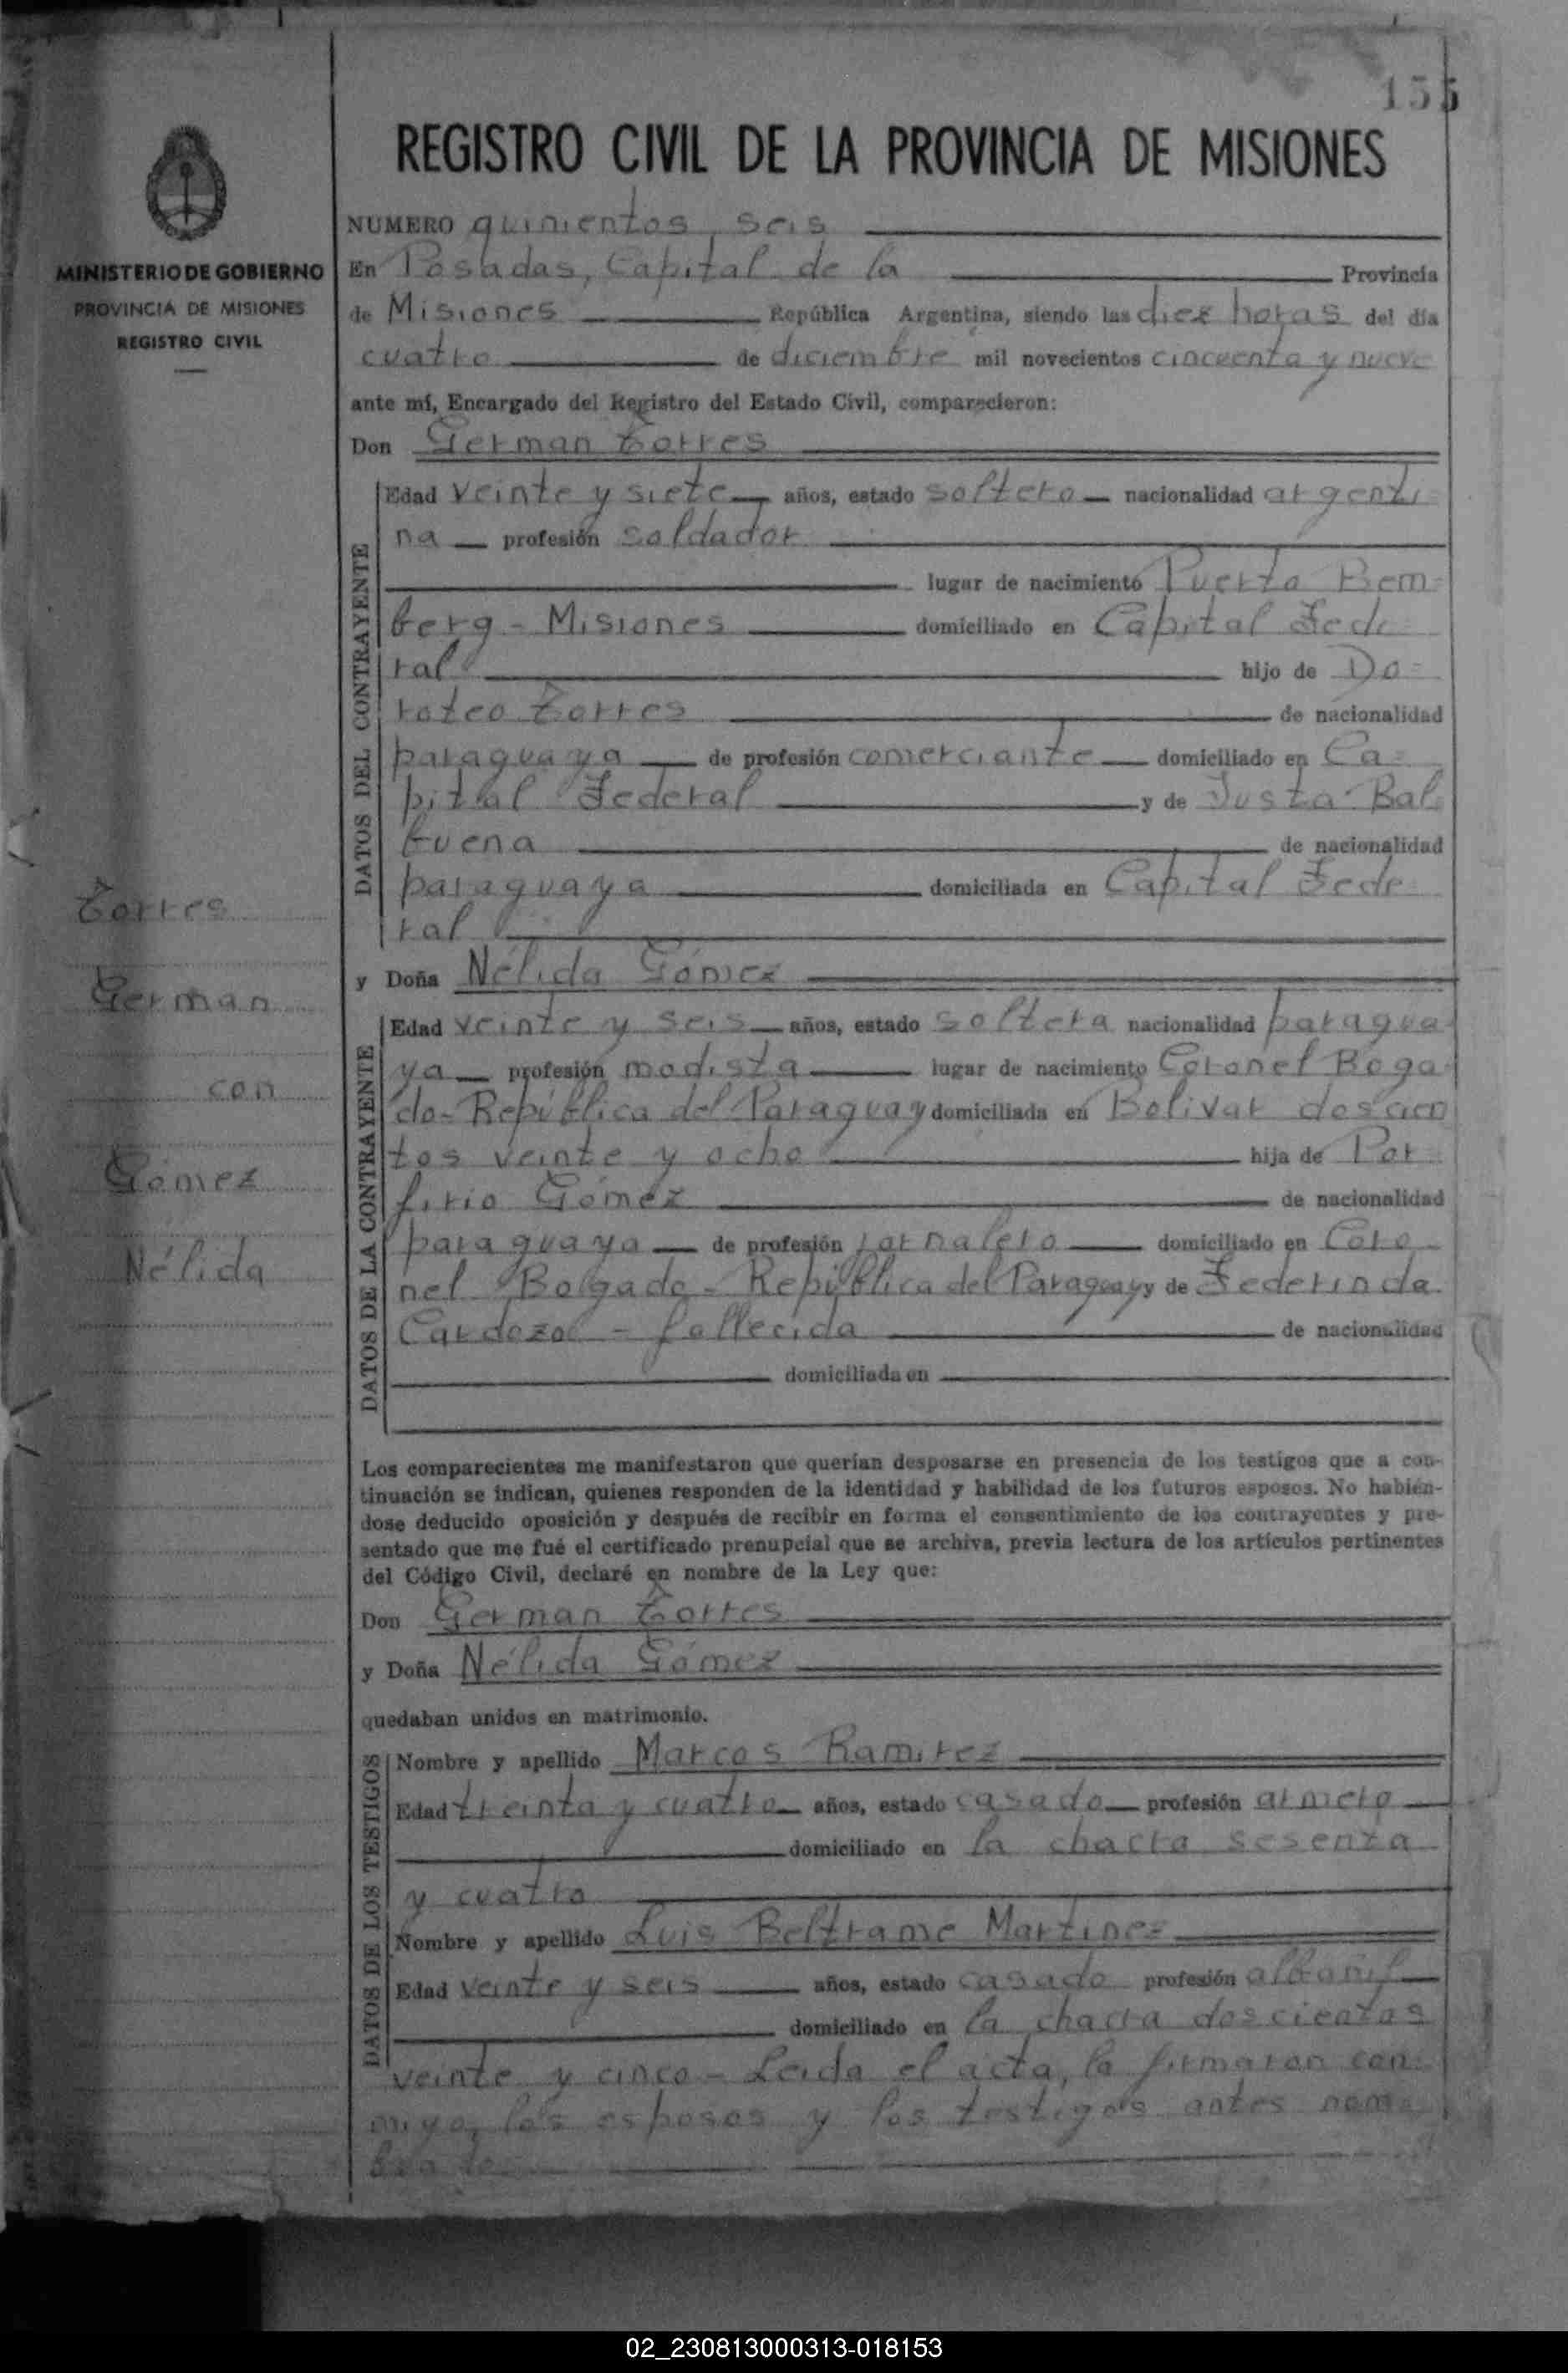 155
REGISTRO CIVIL DE LA PROVINCIA DE MISIONES
MINISTERIO DE GOBIERNO
PROVINCIA DE MISIONES
REGISTRO CIVIL
NUMERO quinientos seis
En Posadas, Capital de la Provincia
de Misiones República Argentina, siendo las diez horas del día
cuatro de diciembre mil novecientos cincuenta y nueve
ante mí, Encargado del Registro del Estado Civil, comparecieron:
Don German Torres
DATOS DEL CONTRAYENTE
Edad veinte y siete años, estado soltero nacionalidad argenti
na profesión soldador
lugar de nacimiento Puerto Bem=
berg - Misiones domiciliado en Capital Fede
ral hijo de Do=
roteo Torres de nacionalidad
paraguaya de profesión comerciante domiciliado en Ca=
pital Federal y de Justa Bal
buena de nacionalidad
paraguaya domiciliada en Capital Fede
ral
y Doña Nélida Gómez
DATOS DE LA CONTRAYENTE
Edad veinte y seis años, estado soltera nacionalidad paragua
ya profesión modista lugar de nacimiento Coronel Boga
do- República del Paraguay domiciliada en Bolivar doscien
tos veinte y ocho hija de Por
firio Gómez de nacionalidad
paraguaya de profesión jornalero domiciliado en Coro
nel Bolgado - República del Paraguay y de Federinda
Cardozo - fallecida de nacionalidad
domiciliada en
Torres
German
con
Gómez
Nélida
Los comparecientes me manifestaron que querían desposarse en presencia de los testigos que a con-
tinuación se indican, quienes responden de la identidad y habilidad de los futuros esposos. No habién-
dose deducido oposición y después de recibir en forma el consentimiento de los contrayentes y pre-
sentado que me fué el certificado prenupcial que se archiva, previa lectura de los artículos pertinentes
del Código Civil, declaré en nombre de la Ley que:
Don German Torres
y Doña Nélida Gómez
quedaban unidos en matrimonio.
DATOS DE LOS TESTIGOS
Nombre y apellido Marcos Ramirez
Edad treinta y cuatro años, estado casado profesión armero
domiciliado en la chacra sesenta
y cuatro
Nombre y apellido Luis Beltrame Martinez
Edad veinte y seis años, estado casado profesión albañil
domiciliado en la chacra doscientos
veinte y cinco - Leida el acta, la firmaron con=
migo, los esposos y los testigos antes nom=
brados
02_230813000313-018153